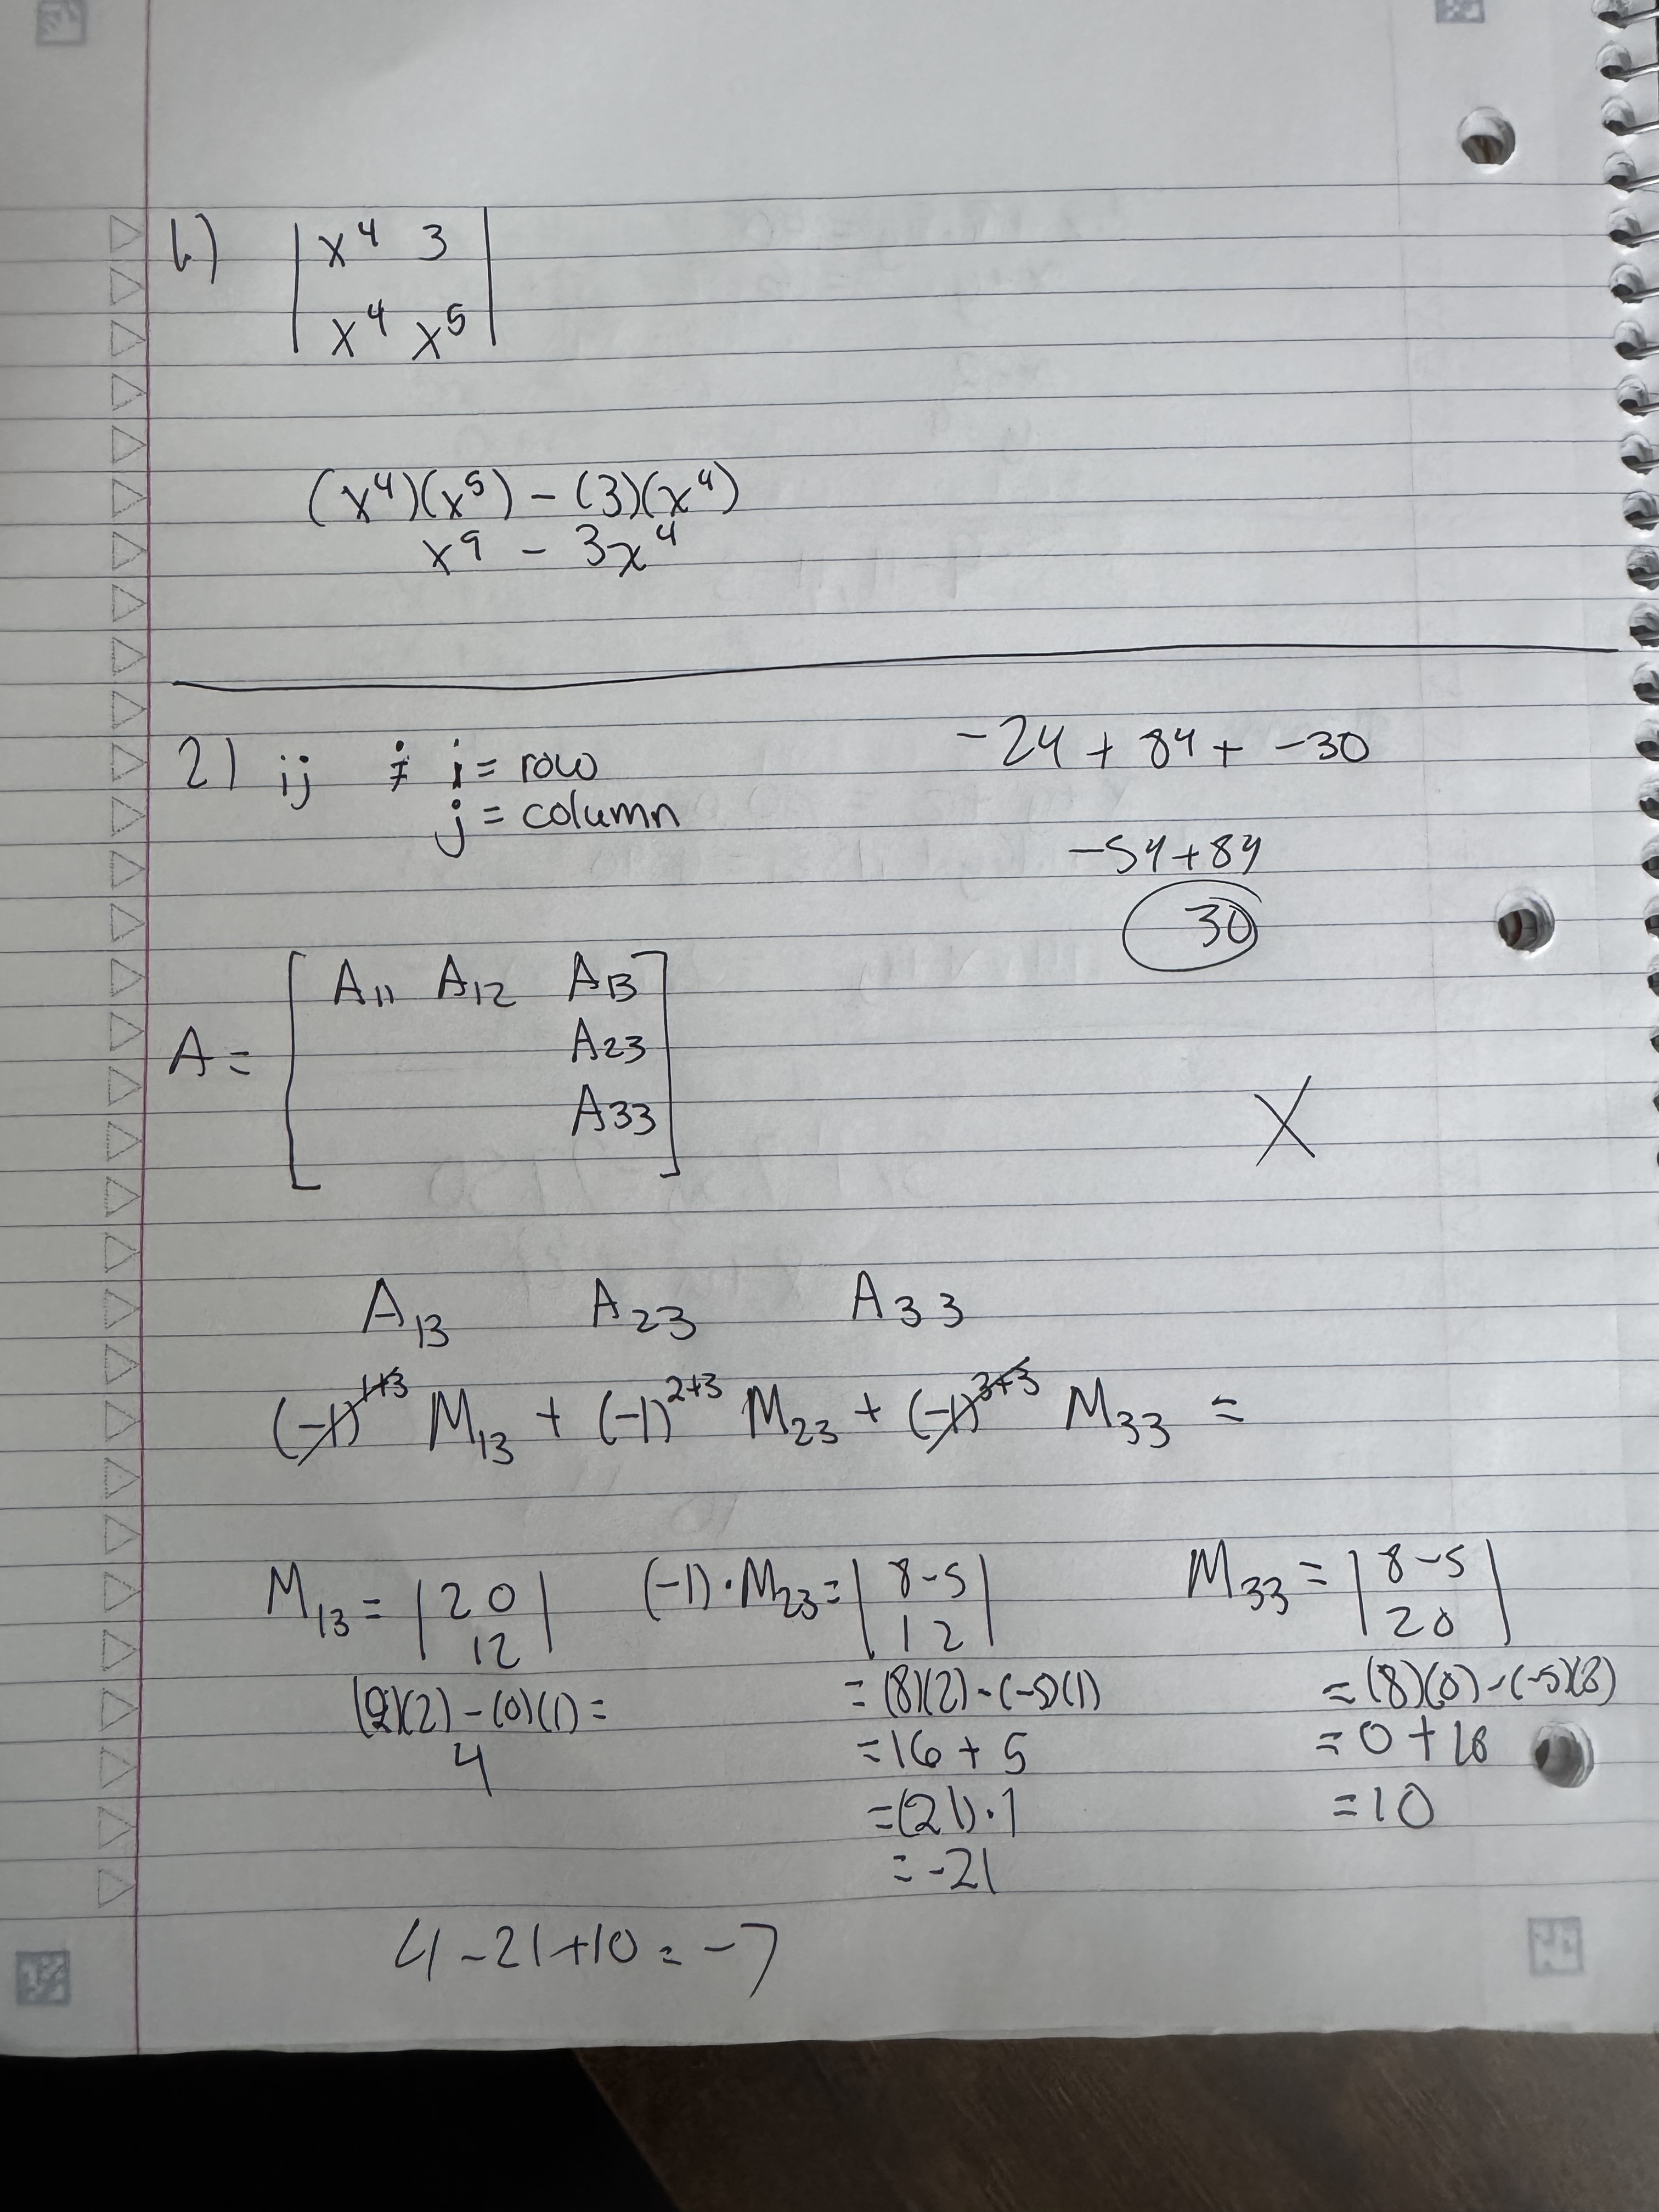 b) | x⁴ 3 |
| x⁴ x⁵ |
(x⁴)(x⁵) - (3)(x⁴)
x⁹ - 3x⁴
2) ij i = row
j = column
-24 + 84 + -30
-54 + 84
30
A = [ A₁₁ A₁₂ A₁₃
A₂₃
A₃₃ ]
X
A₁₃ A₂₃ A₃₃
(-1)¹⁺³ M₁₃ + (-1)²⁺³ M₂₃ + (-1)³⁺³ M₃₃ =
M₁₃ = | 2 0 |
| 1 2 |
(2)(2) - (0)(1) =
4
(-1) · M₂₃ = | 8 -5 |
| 1 2 |
= (8)(2) - (-5)(1)
= 16 + 5
= (21) · 1
= -21
M₃₃ = | 8 -5 |
| 2 0 |
= (8)(0) - (-5)(2)
= 0 + 10
= 10
4 - 21 + 10 = -7